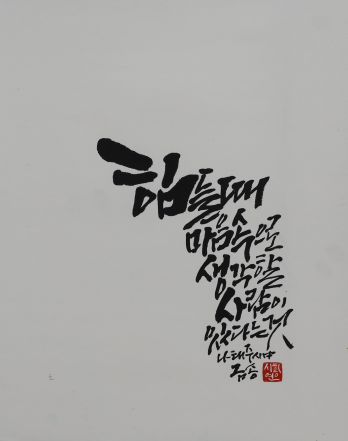 힘들때
마음속으로
생각할
사람이
있다는것
나태주 시